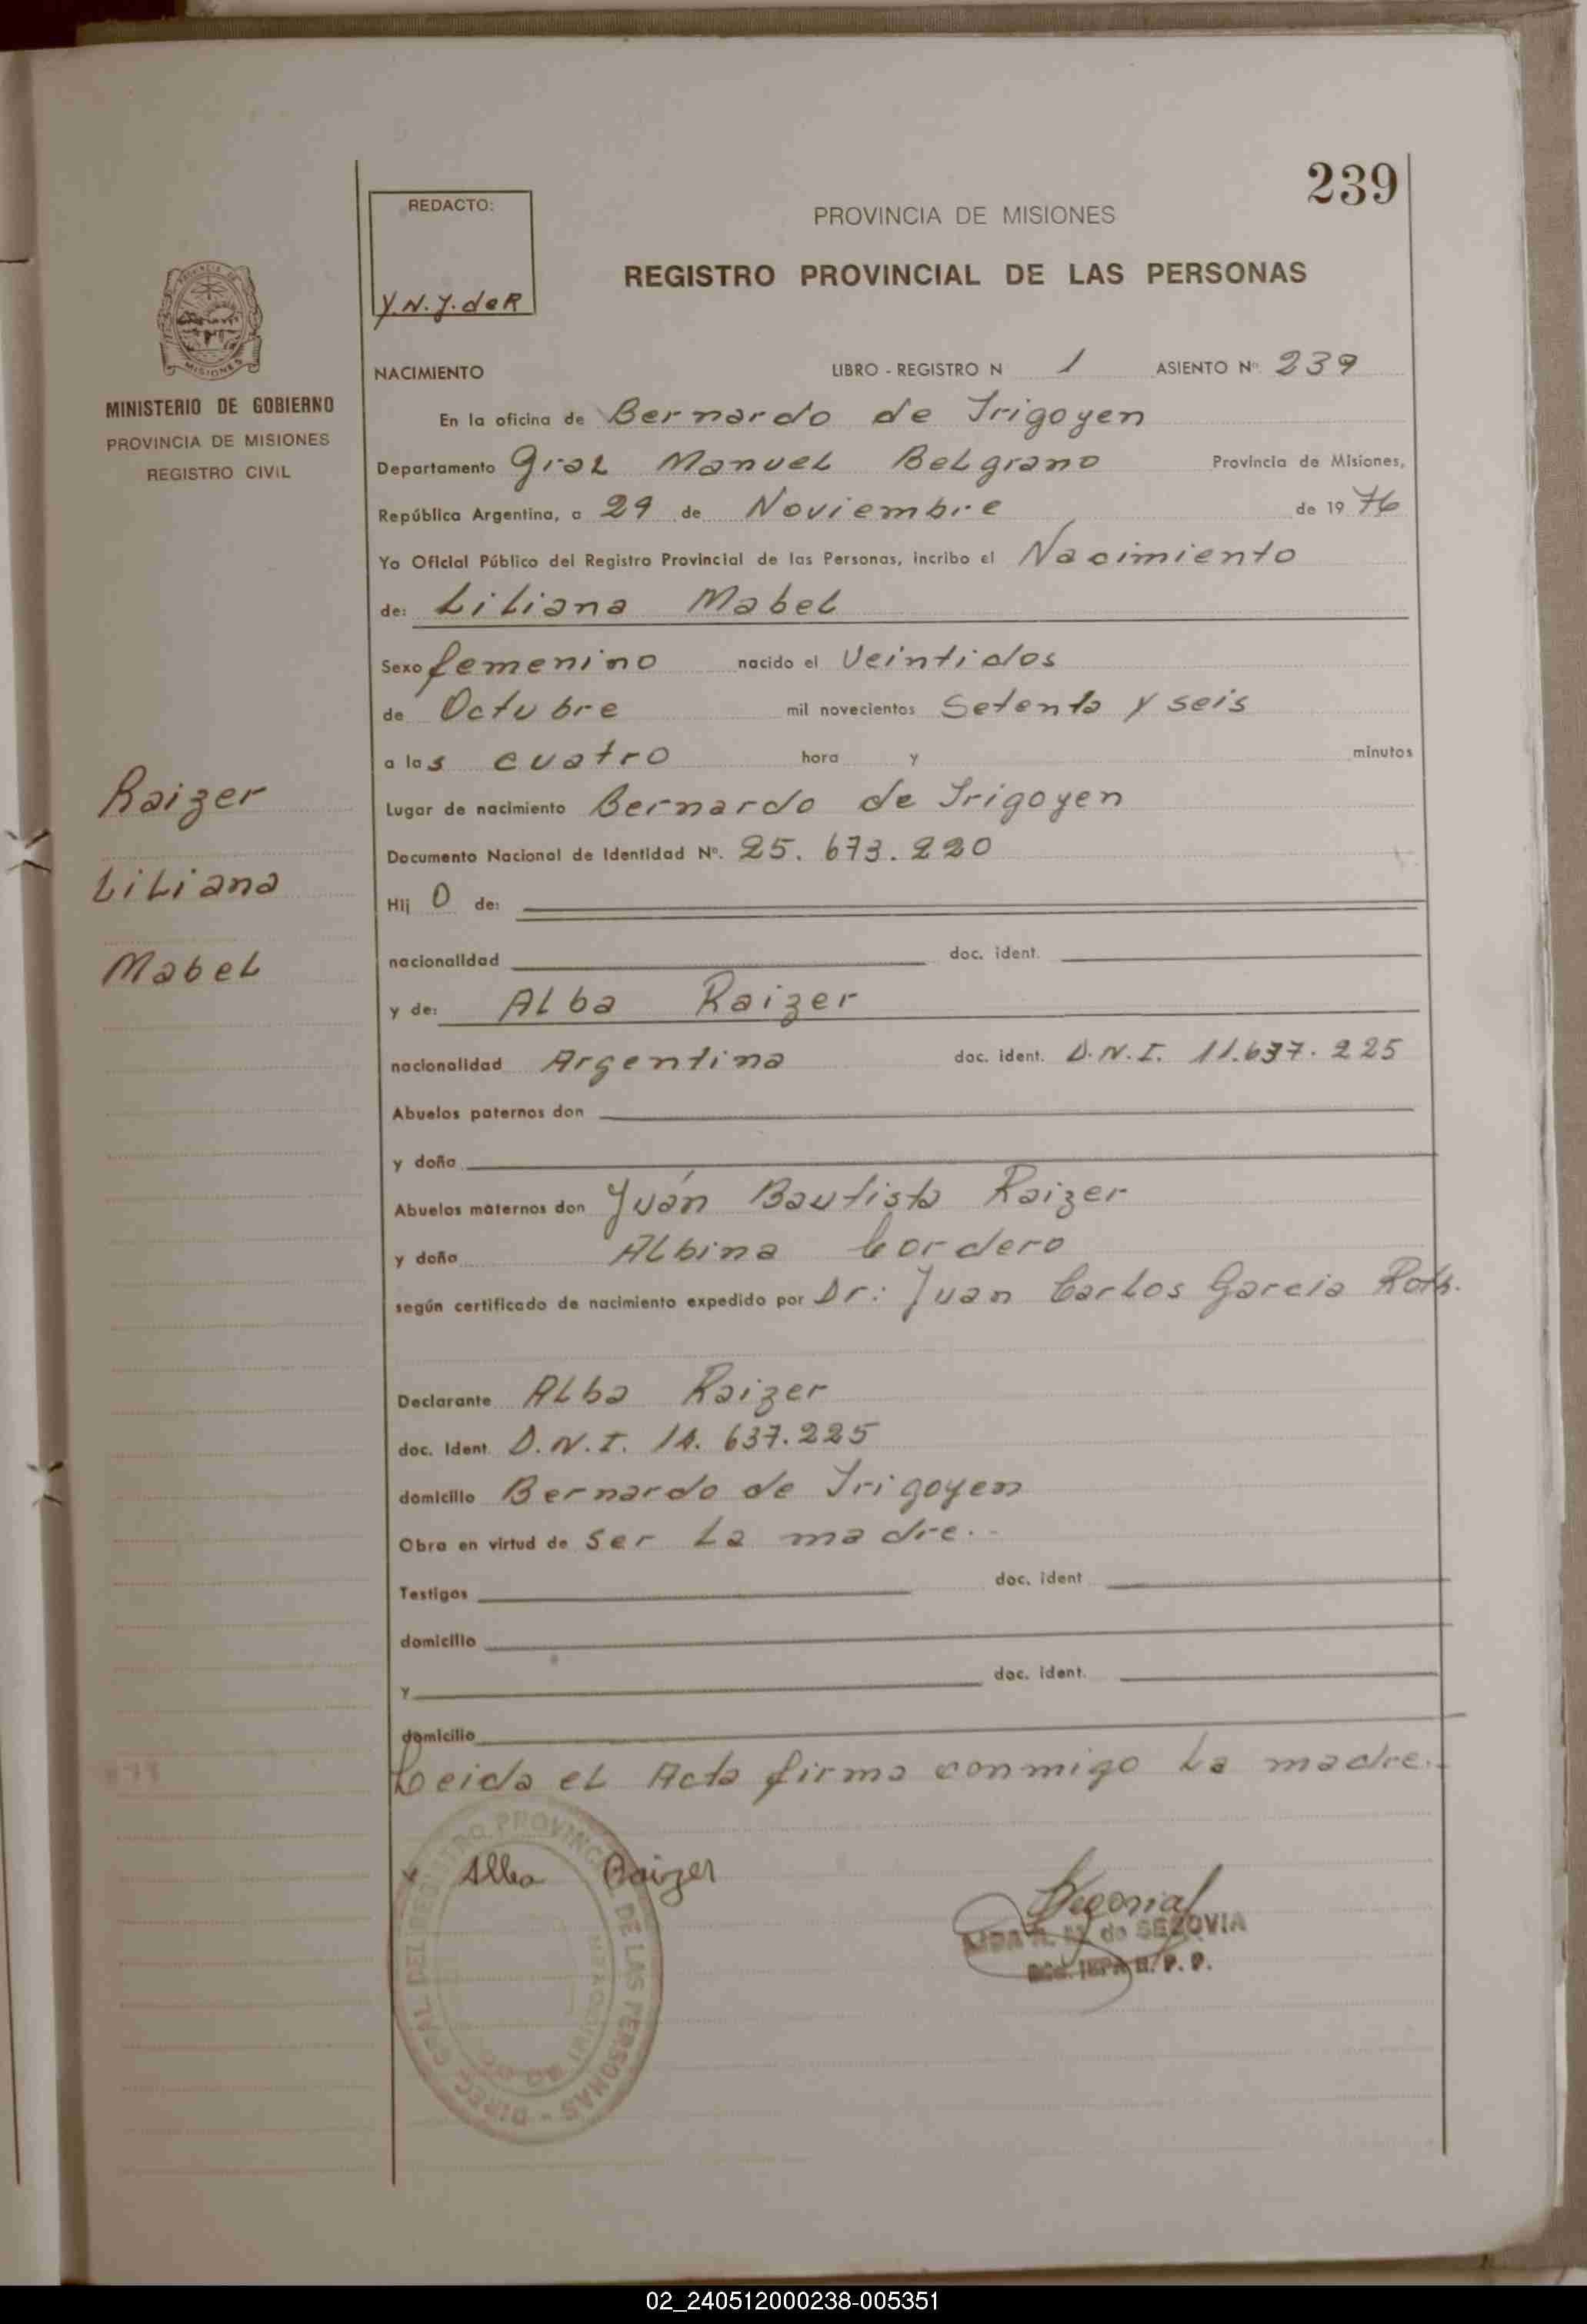 239
REDACTO:
Y.N.J. de R
PROVINCIA DE MISIONES
REGISTRO PROVINCIAL DE LAS PERSONAS
MISIONES
MINISTERIO DE GOBIERNO
PROVINCIA DE MISIONES
REGISTRO CIVIL
Raizer
Liliana
Mabel
NACIMIENTO LIBRO - REGISTRO N 1 ASIENTO Nº 239
En la oficina de Bernardo de Irigoyen
Departamento Gral Manuel Belgrano Provincia de Misiones,
República Argentina, a 29 de Noviembre de 1976
Yo Oficial Público del Registro Provincial de las Personas, incribo el Nacimiento
de: Liliana Mabel
Sexo femenino nacido el Veintidos
de Octubre mil novecientos Setenta y seis
a las cuatro hora y minutos
Lugar de nacimiento Bernardo de Irigoyen
Documento Nacional de Identidad Nº. 25.673.220
Hij O de:
nacionalidad doc. ident.
y de: Alba Raizer
nacionalidad Argentina doc. ident. D.N.I. 11.637.225
Abuelos paternos don
y doña
Abuelos maternos don Juán Bautista Raizer
y doña Albina Cordero
según certificado de nacimiento expedido por Dr: Juan Carlos Garcia
Declarante Alba Raizer
doc. Ident. D.N.I. 637.225
domicilio Bernardo de Irigoyen
Obra en virtud de ser la madre.-
Testigos doc. ident
domicilio
y doc. ident.
domicilio
Leida el Acta firma conmigo la madre.-
x Alba Raizer
de SEGOVIA
DIREC. GRAL. DEL REGISTRO PROVINCIAL DE LAS PERSONAS -
02_240512000238-005351